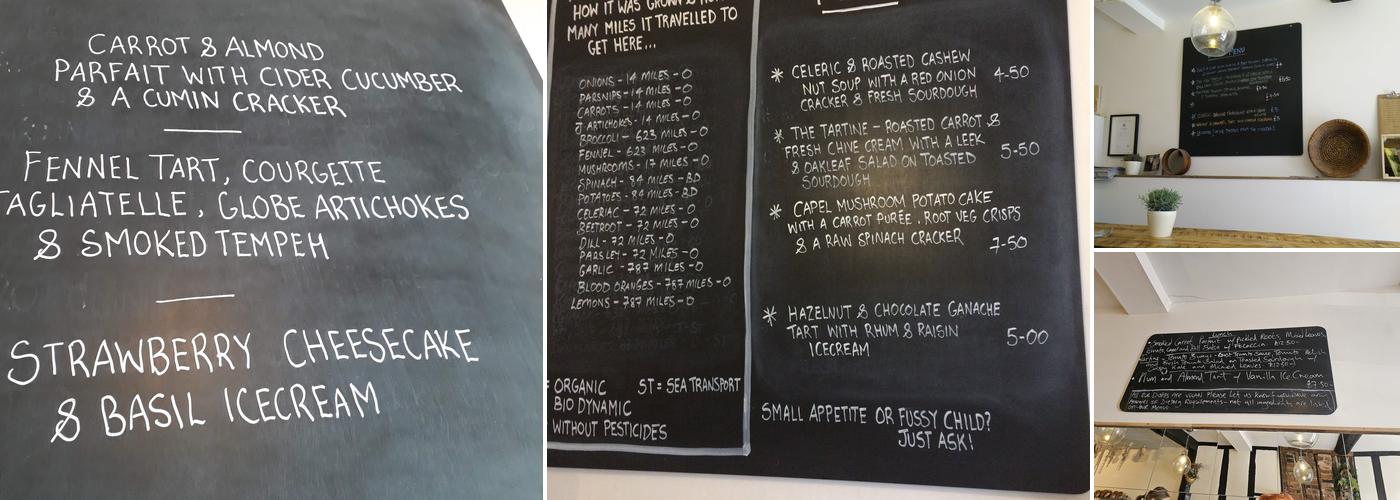 CARROT & ALMOND
PARFAIT WITH CIDER CUCUMBER
& A CUMIN CRACKER
FENNEL TART, COURGETTE
TAGLIATELLE, GLOBE ARTICHOKES
& SMOKED TEMPEH
STRAWBERRY CHEESECAKE
& BASIL ICECREAM
HOW IT WAS GROWN &
MANY MILES IT TRAVELLED TO
GET HERE...
ONIONS - 14 MILES - O
PARSNIPS - 14 MILES - O
CARROTS - 14 MILES - O
J ARTICHOKES - 14 MILES - O
BROCCOLI - 623 MILES - O
FENNEL - 623 MILES - O
MUSHROOMS - 17 MILES - O
SPINACH - 84 MILES - BD
POTATOES - 84 MILES - BD
CELERIAC - 72 MILES - O
BEETROOT - 72 MILES - O
DILL - 72 MILES - O
PARSLEY - 72 MILES - O
GARLIC - 787 MILES - O
BLOOD ORANGES - 787 MILES - O
LEMONS - 787 MILES - O
= ORGANIC ST = SEA TRANSPORT
BIO DYNAMIC
WITHOUT PESTICIDES
* CELERIC & ROASTED CASHEW
NUT SOUP WITH A RED ONION 4-50
CRACKER & FRESH SOURDOUGH
* THE TARTINE - ROASTED CARROT &
FRESH CHIVE CREAM WITH A LEEK
& OAKLEAF SALAD ON TOASTED 5-50
SOURDOUGH
* CAPEL MUSHROOM POTATO CAKE
WITH A CARROT PURÉE, ROOT VEG CRISPS
& A RAW SPINACH CRACKER 7-50
* HAZELNUT & CHOCOLATE GANACHE
TART WITH RHUM & RAISIN 5-00
ICECREAM
SMALL APPETITE OR FUSSY CHILD?
JUST ASK!
MENU
Lunch
Smoked Carrot Parfait w/ Pickled Roots, Mixed Leaves,
Crispy Kale and Mixed Leaves
Plum and Almond Tart w/ Vanilla Ice Cream
£7.50
All our Dishes are vegan Please let us know if you have any
Dietary Requirements - not all ingredients are listed
on our Menu